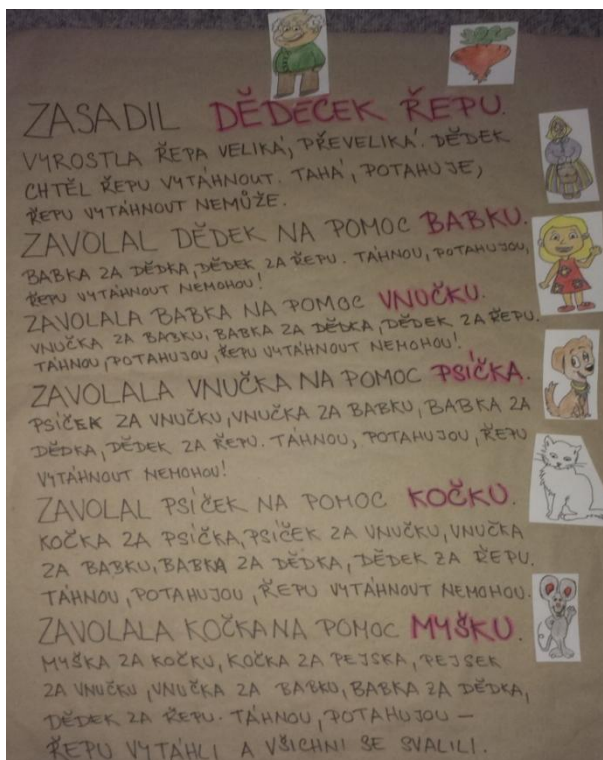 ZASADIL DĚDEČEK ŘEPU.
VYROSTLA ŘEPA VELIKÁ, PŘEVELIKÁ. DĚDEK
CHTĚL ŘEPU VYTÁHNOUT. TAHÁ, POTAHUJE,
ŘEPU VYTÁHNOUT NEMŮŽE.
ZAVOLAL DĚDEK NA POMOC BABKU.
BABKA ZA DĚDKA, DĚDEK ZA ŘEPU. TÁHNOU, POTAHUJOU,
ŘEPU VYTÁHNOUT NEMOHOU!
ZAVOLALA BABKA NA POMOC VNUČKU.
VNUČKA ZA BABKU, BABKA ZA DĚDKA, DĚDEK ZA ŘEPU.
TÁHNOU, POTAHUJOU, ŘEPU VYTÁHNOUT NEMOHOU!
ZAVOLALA VNUČKA NA POMOC PSÍČKA.
PSÍČEK ZA VNUČKU, VNUČKA ZA BABKU, BABKA ZA
DĚDKA, DĚDEK ZA ŘEPU. TÁHNOU, POTAHUJOU, ŘEPU
VYTÁHNOUT NEMOHOU!
ZAVOLAL PSÍČEK NA POMOC KOČKU.
KOČKA ZA PSÍČKA, PSÍČEK ZA VNUČKU, VNUČKA
ZA BABKU, BABKA ZA DĚDKA, DĚDEK ZA ŘEPU.
TÁHNOU, POTAHUJOU, ŘEPU VYTÁHNOUT NEMOHOU.
ZAVOLALA KOČKA NA POMOC MYŠKU.
MYŠKA ZA KOČKU, KOČKA ZA PEJSKA, PEJSEK
ZA VNUČKU, VNUČKA ZA BABKU, BABKA ZA DĚDKA,
DĚDEK ZA ŘEPU. TÁHNOU, POTAHUJOU –
ŘEPU VYTÁHLI A VŠICHNI SE SVALILI.